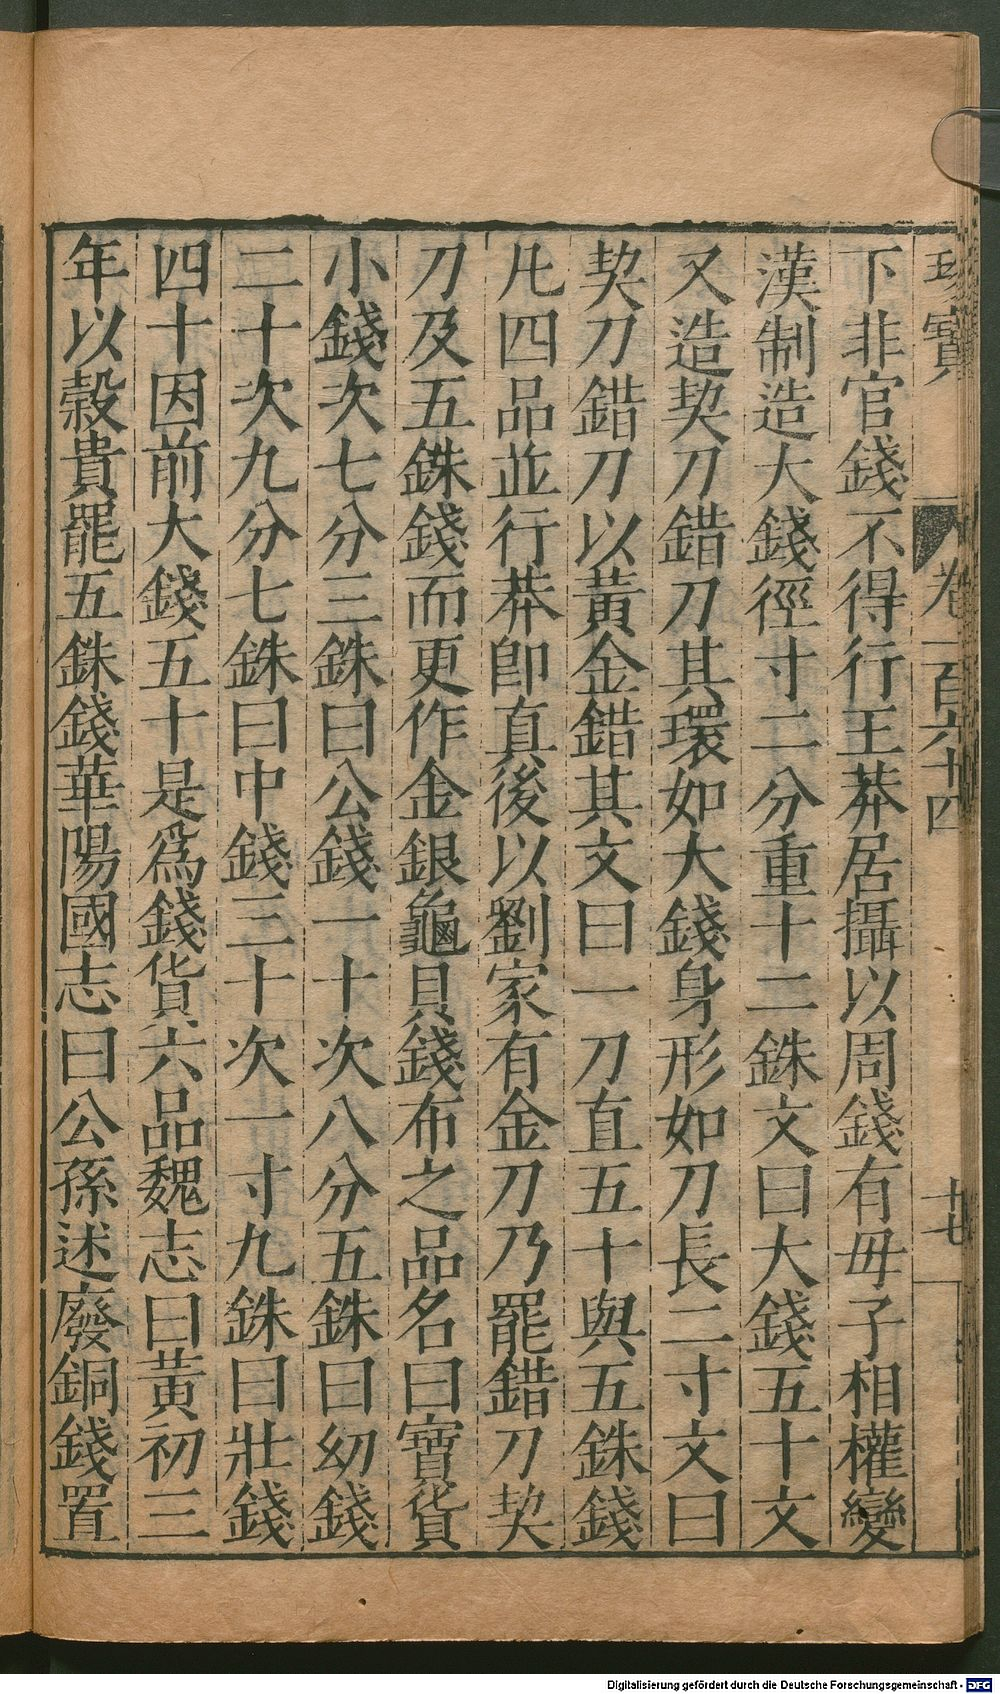 珍寶 卷一百六十四 十七
下非官錢不得行王莽居攝以周錢有毋子相權變
漢制造大錢徑寸二分重十二銖文曰大錢五十文
又造契刀錯刀其環如大錢身形如刀長二寸文曰
契刀錯刀以黃金錯其文曰一刀直五十與五銖錢
凡四品並行莽卽真後以劉家有金刀乃罷錯刀契
刀及五銖錢而更作金銀龜貝錢布之品名曰寶貨
小錢次七分三銖曰公錢一十次八分五銖曰幼錢
二十次九分七銖曰中錢三十次一寸九銖曰壯錢
四十因前大錢五十是爲錢貨六品魏志曰黃初三
年以穀貴罷五銖錢華陽國志曰公孫述廢銅錢置
Digitalisierung gefördert durch die Deutsche Forschungsgemeinschaft - DFG